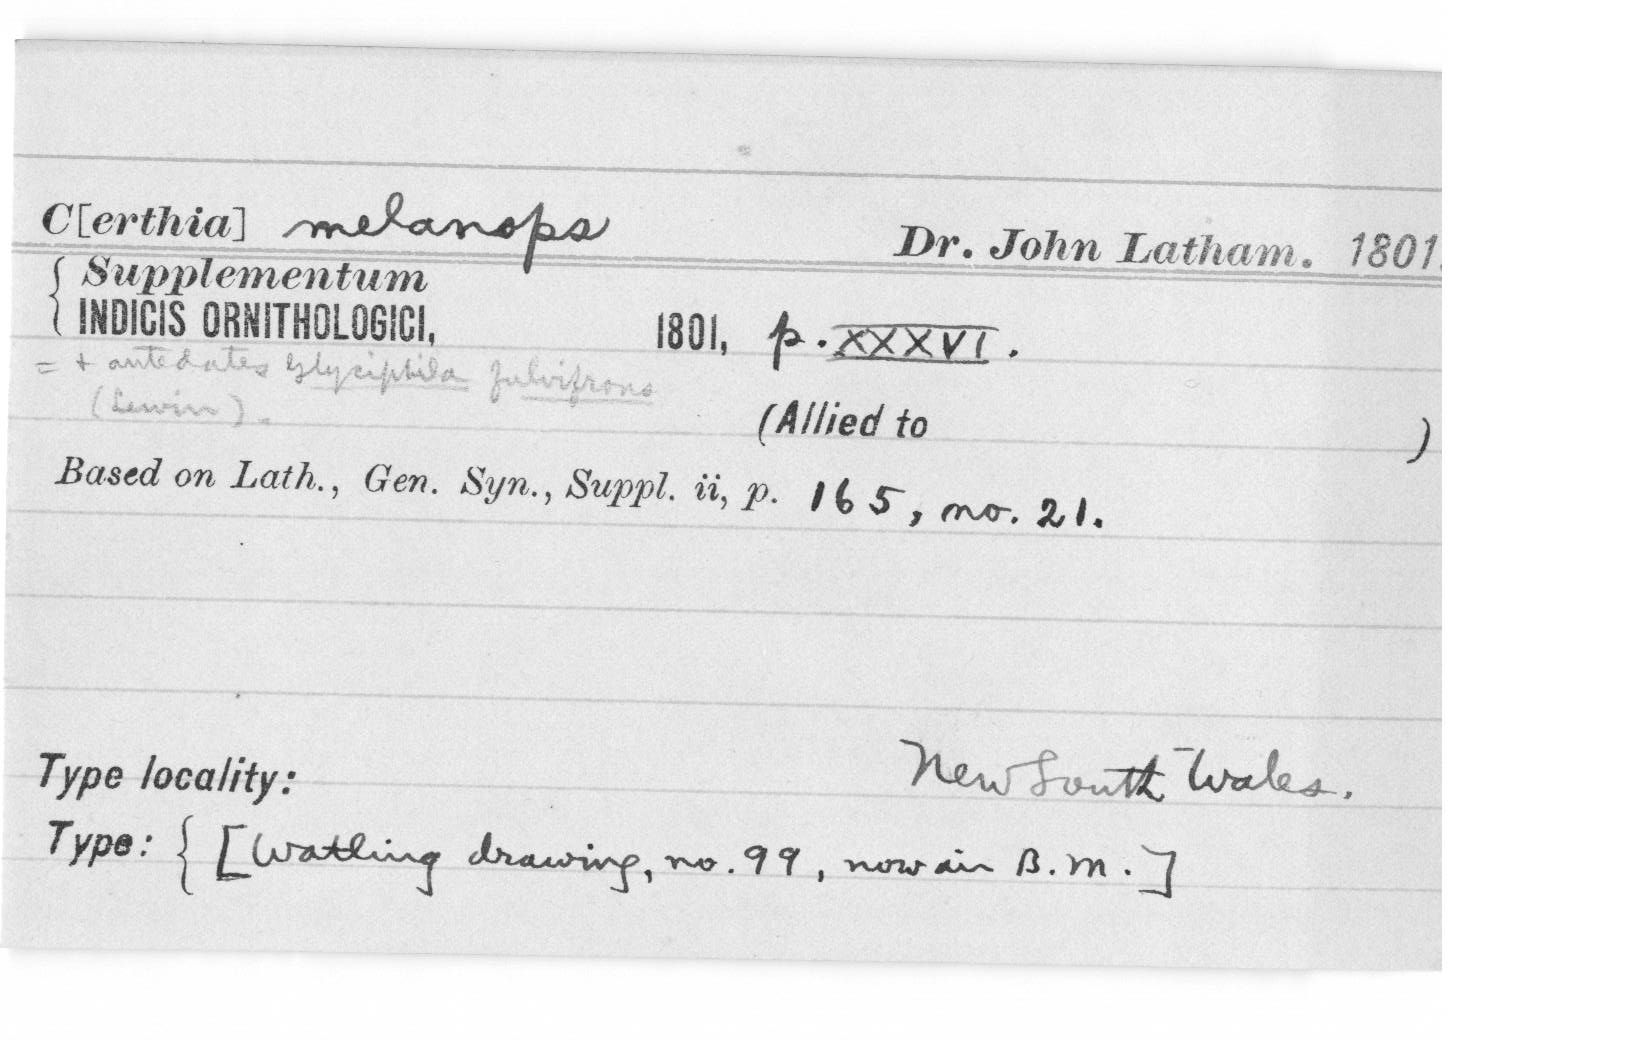 C[erthia] melanops Dr. John Latham. 1801.
{ Supplementum
INDICIS ORNITHOLOGICI, 1801, p. XXXVI.
= + antedates Glyciphila fulvifrons
(Lewin).
(Allied to )
Based on Lath., Gen. Syn., Suppl. ii, p. 165, no. 21.
Type locality: New South Wales.
Type: { [Watling drawing, no. 99, now in B.M.]